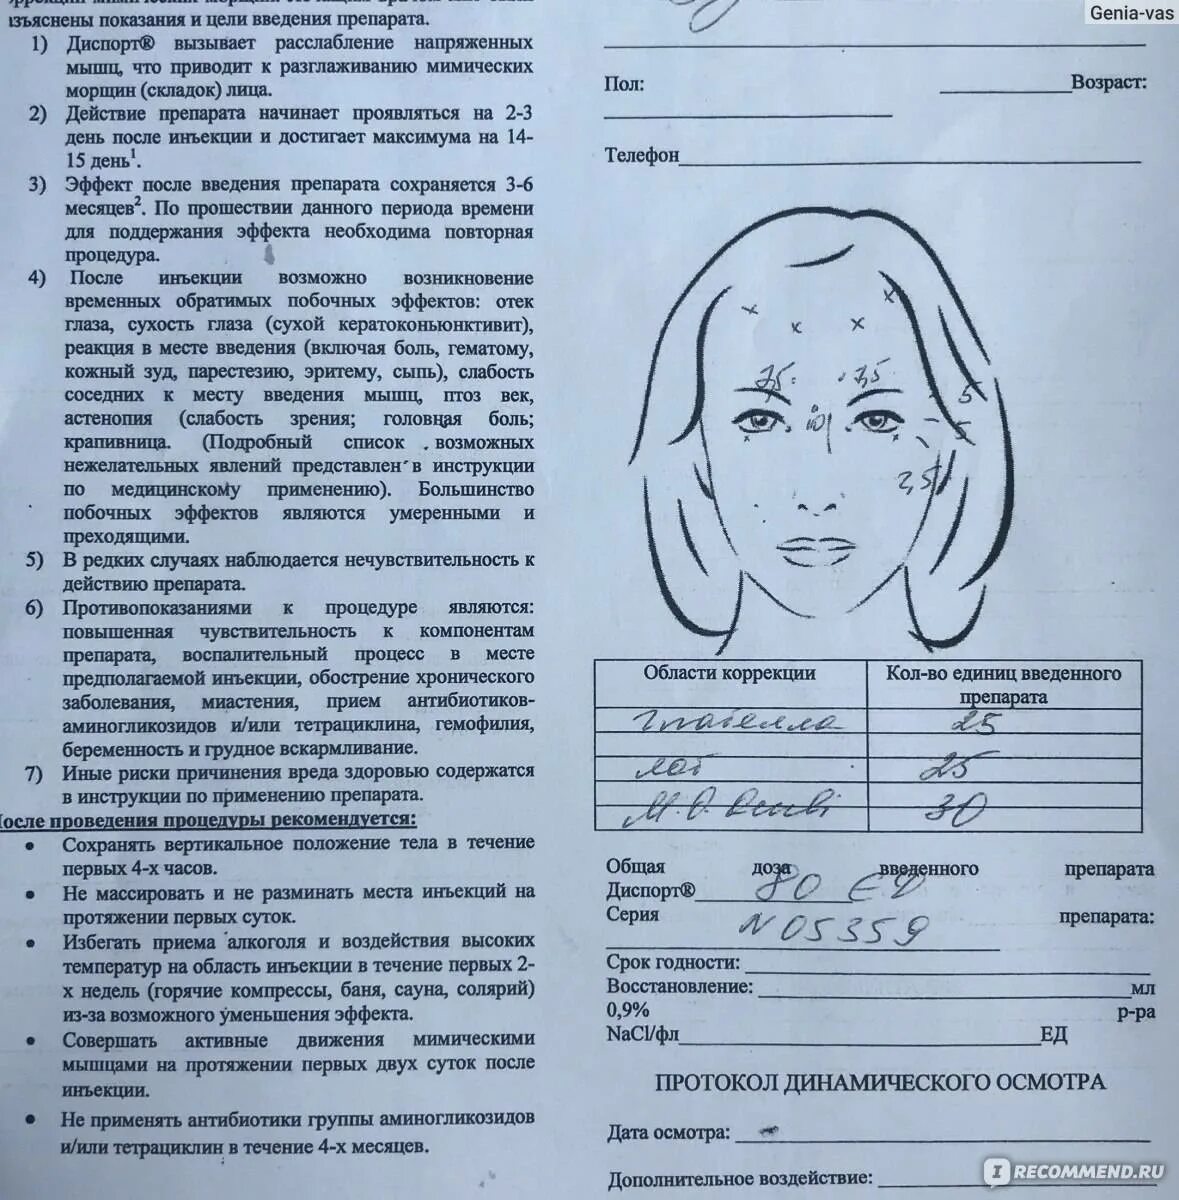 зъяснены показания и цели введения препарата.
1) Диспорт® вызывает расслабление напряженных
мышц, что приводит к разглаживанию мимических
морщин (складок) лица.
2) Действие препарата начинает проявляться на 2-3
день после инъекции и достигает максимума на 14-
15 день1.
3) Эффект после введения препарата сохраняется 3-6
месяцев2. По прошествии данного периода времени
для поддержания эффекта необходима повторная
процедура.
4) После инъекции возможно возникновение
временных обратимых побочных эффектов: отек
глаза, сухость глаза (сухой кератоконьюнктивит),
реакция в месте введения (включая боль, гематому,
кожный зуд, парестезию, эритему, сыпь), слабость
соседних к месту введения мышц, птоз век,
астенопия (слабость зрения; головная боль;
крапивница. (Подробный список возможных
нежелательных явлений представлен в инструкции
по медицинскому применению). Большинство
побочных эффектов являются умеренными и
преходящими.
5) В редких случаях наблюдается нечувствительность к
действию препарата.
6) Противопоказаниями к процедуре являются:
повышенная чувствительность к компонентам
препарата, воспалительный процесс в месте
предполагаемой инъекции, обострение хронического
заболевания, миастения, прием антибиотиков-
аминогликозидов и/или тетрациклина, гемофилия,
беременность и грудное вскармливание.
7) Иные риски причинения вреда здоровью содержатся
в инструкции по применению препарата.
После проведения процедуры рекомендуется:
• Сохранять вертикальное положение тела в течение
первых 4-х часов.
• Не массировать и не разминать места инъекций на
протяжении первых суток.
• Избегать приема алкоголя и воздействия высоких
температур на область инъекции в течение первых 2-
х недель (горячие компрессы, баня, сауна, солярий)
из-за возможного уменьшения эффекта.
• Совершать активные движения мимическими
мышцами на протяжении первых двух суток после
инъекции.
• Не применять антибиотики группы аминогликозидов
и/или тетрациклин в течение 4-х месяцев.
Genia-vas
Пол: Возраст:
Телефон
7,5 7,5
5
10 5
2,5
Области коррекции Кол-во единиц введенного
препарата
25
лоб 25
М.О. 30
Общая доза введенного препарата
Диспорт® 80 ЕД
Серия препарата:
N05359
Срок годности:
Восстановление: мл
0,9% р-ра
NaCl/фл ЕД
ПРОТОКОЛ ДИНАМИЧЕСКОГО ОСМОТРА
Дата осмотра:
Дополнительное воздействие:
IRECOMMEND.RU